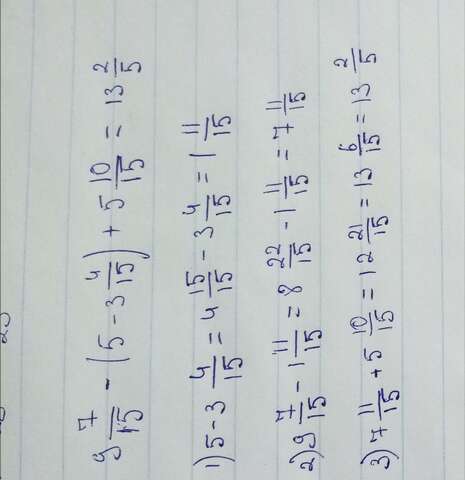 9 7/15 - (5 - 3 4/15) + 5 10/15 = 13 2/5
1) 5 - 3 4/15 = 4 15/15 - 3 4/15 = 1 11/15
2) 9 7/15 - 1 11/15 = 8 22/15 - 1 11/15 = 7 11/15
3) 7 11/15 + 5 10/15 = 12 21/15 = 13 6/15 = 13 2/5